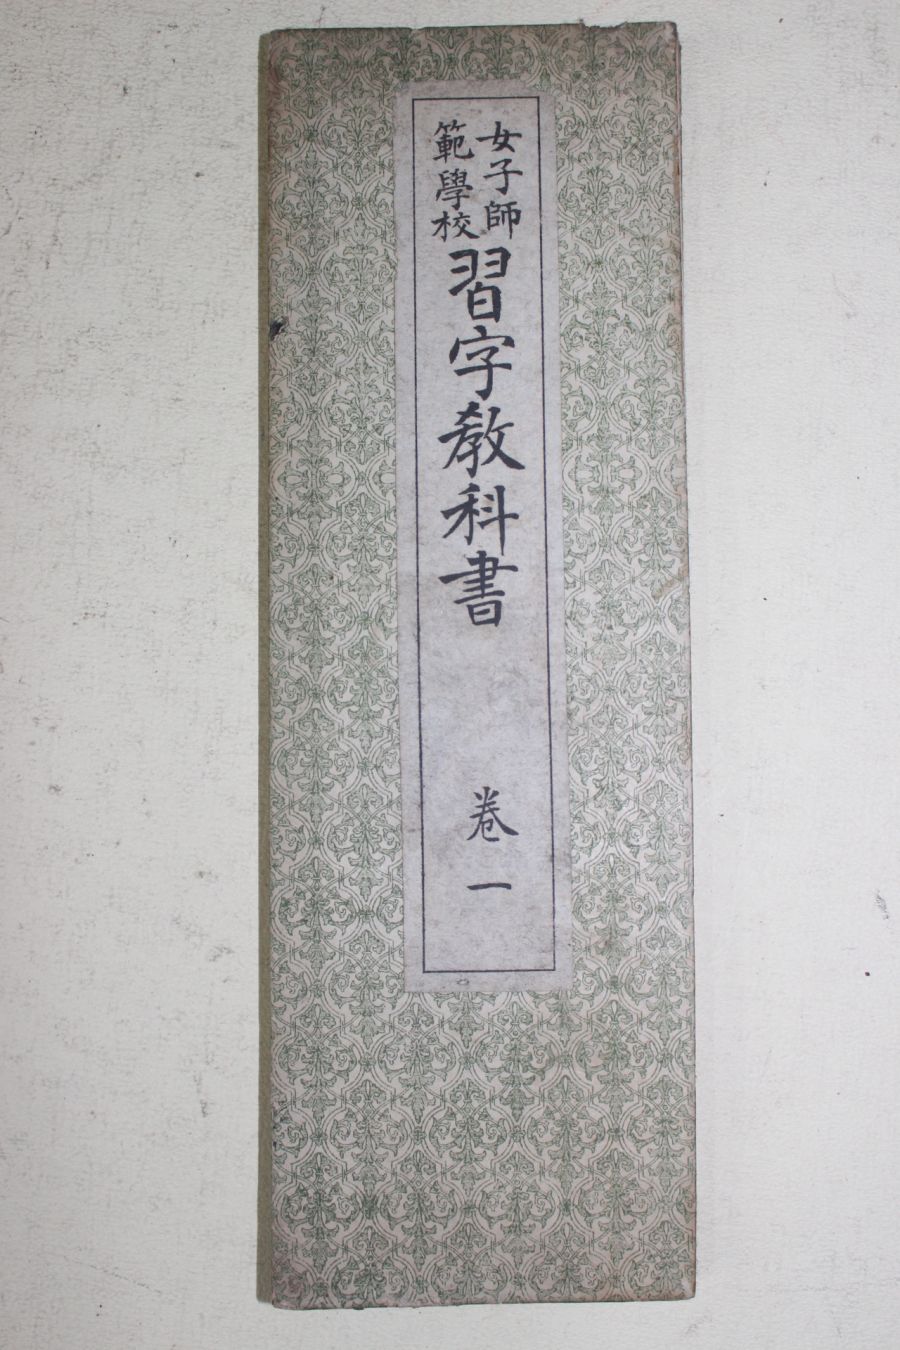 女子師
範學校
習字教科書
卷一